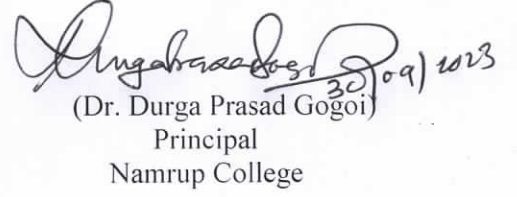 Durgaprasad Gogoi 30/09/2023
(Dr. Durga Prasad Gogoi)
Principal
Namrup College